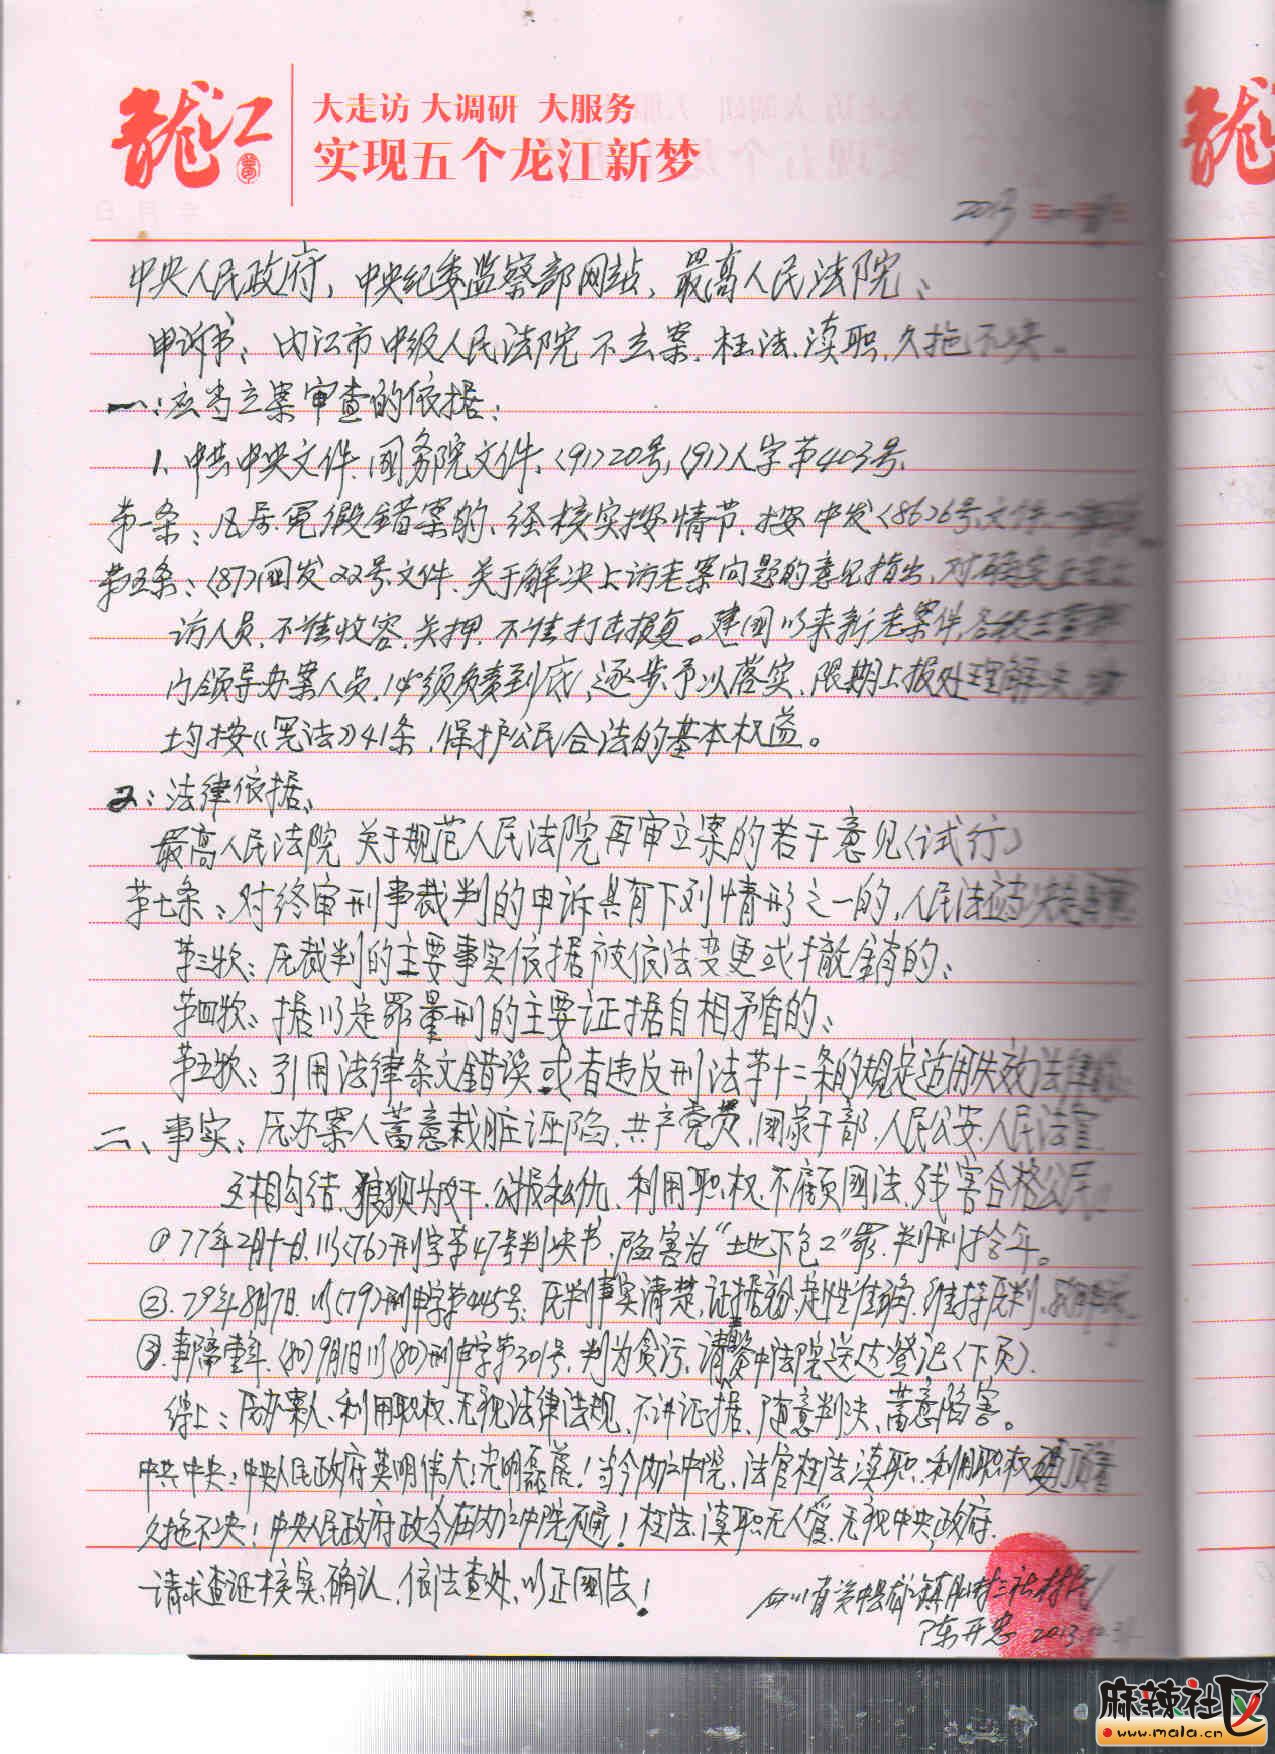 龙江
大走访 大调研 大服务
实现五个龙江新梦
2013年
中央人民政府，中央纪委监察部网站、最高人民法院、
申诉书：内江市中级人民法院不立案、枉法、渎职，久拖不决。
一：应当立案审查的依据：
1、中共中央文件、国务院文件、〈91〉20号，〈91〉人字第403号、
第一条：凡属冤假错案的、经核实按情节、按中发〈86〉6号文件一
第五条：〈87〉国发22号文件、关于解决上访老案问题的意见指出，对确实上
访人员、不准收容、关押、不准打击报复。建国以来新老案件，各级
门领导办案人员，必须负责到底，逐步予以落实、限期上报处理解决，
均按《宪法》41条，保护公民合法的基本权益。
2：法律依据、
最高人民法院 关于规范人民法院再审立案的若干意见〈试行〉
第七条：对终审刑事裁判的申诉具有下列情形之一的，人民法应当决定再审
第三款：原裁判的主要事实依据被依法变更或撤销的、
第四款：据以定罪量刑的主要证据自相矛盾的、
第五款：引用法律条文错误或者违反刑法第十二条的规定适用失效法律的
二、事实：原办案人蓄意栽脏诬陷，共产党员，国家干部，人民公安，人民法官
互相勾结，狼狈为奸，公报私仇，利用职权，不顾国法，残害合格公民。
①77年2月 日，川〈76〉刑字第47号判决书，陷害为“地下包工”罪，判刑拾年。
②、79年8月7日、川〈79〉刑申字第445号：原判事实清楚，证据充分，定性准确，维持原判，
③、事隔壹年，〈80〉9月1日川〈80〉刑申字第301号，判为贪污，请 中法院送达登记〈下页〉.
综上：原办案人、利用职权、无视法律法规，不讲证据，随意判决、蓄意陷害。
中共中央：中央人民政府英明伟大：光明磊落！当今内江中院、法官枉法渎职，利用职权硬顶着
久拖不决！中央人民政府政令在内江中院不通！枉法，渎职无人管，无视中央，政府，
请求查证核实，确认，依法查处，以正国法！
四川省资中县 镇 村三社村民
陈开忠 2013.10.31
麻辣社区
www.mala.cn